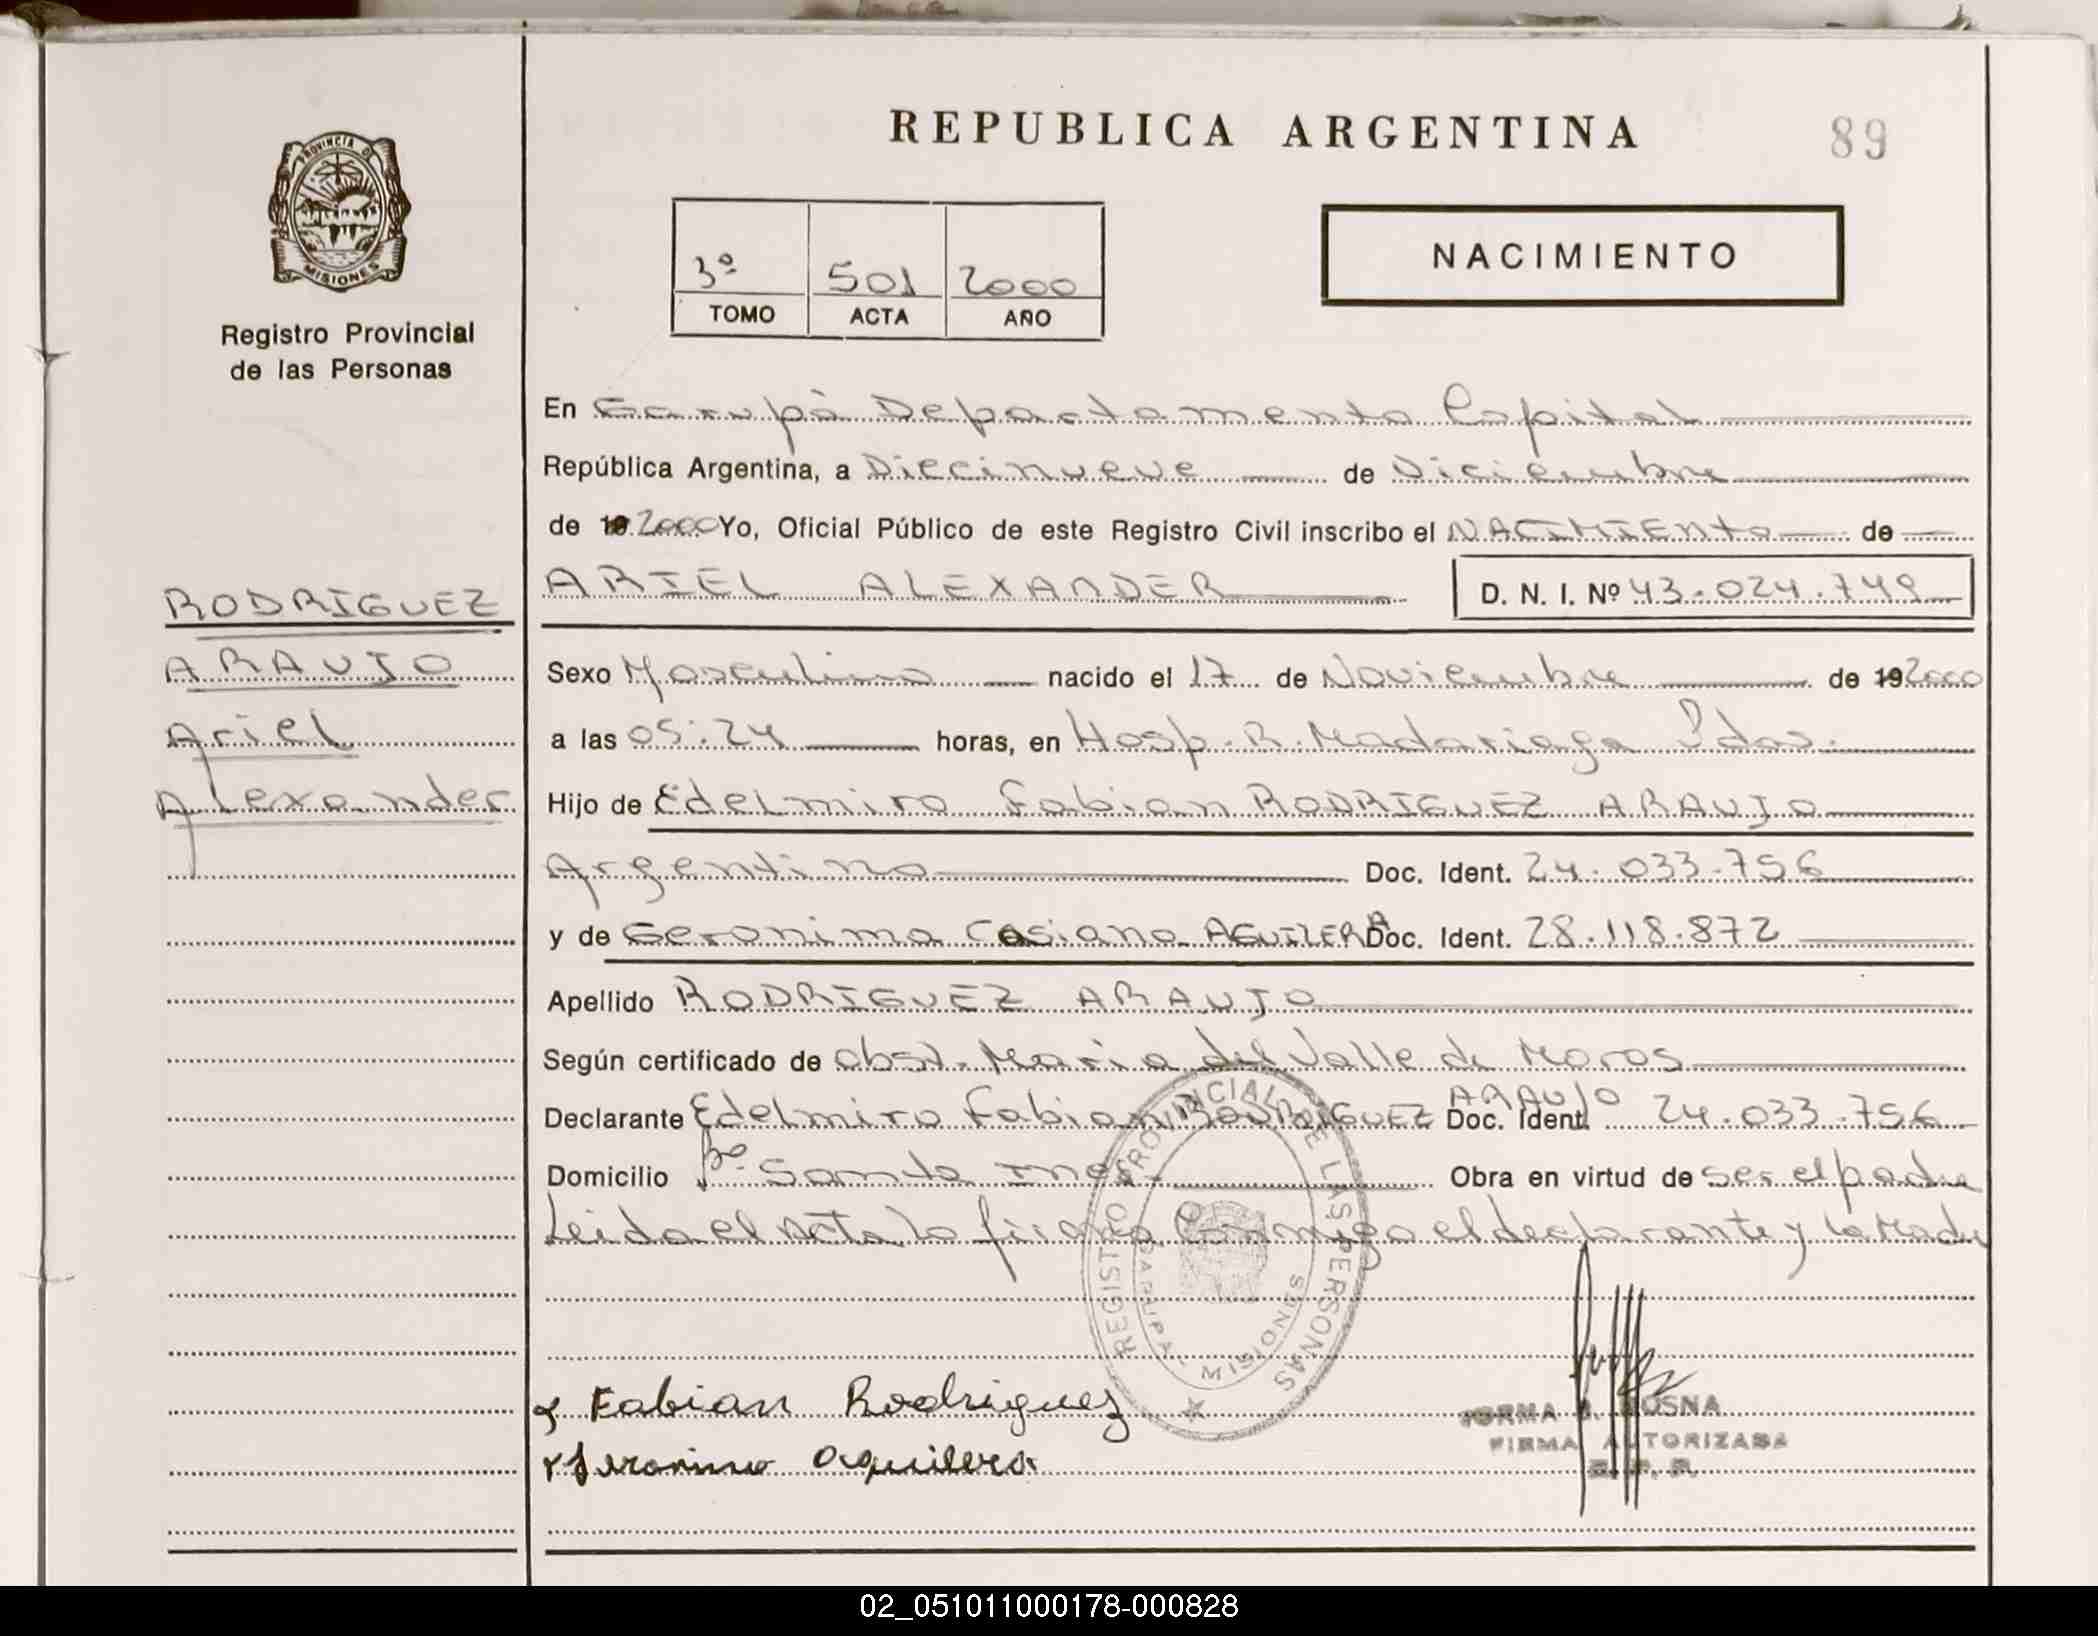 REPUBLICA ARGENTINA
89
PROVINCIA DE
MISIONES
Registro Provincial
de las Personas
NACIMIENTO
3º 501 2000
TOMO ACTA AÑO
En Garupá Departamento Capital
República Argentina, a Diecinueve de Diciembre
de 19 2000 Yo, Oficial Público de este Registro Civil inscribo el NACIMIENTO de
ARIEL ALEXANDER D. N. I. Nº 43.024.749
RODRIGUEZ
ARAUJO
Ariel
Alexander
Sexo Masculino nacido el 17 de Noviembre de 19 2000
a las 05:24 horas, en Hosp. R. Madariaga Pdas.
Hijo de Edelmiro Fabian RODRIGUEZ ARAUJO
Argentino Doc. Ident. 24.033.756
y de Geronima Casiana AGUILERA Doc. Ident. 28.118.872
Apellido RODRIGUEZ ARAUJO
Según certificado de obst. Maria del Valle de Moros
Declarante Edelmiro Fabian RODRIGUEZ ARAUJO Doc. Ident. 24.033.756
Domicilio Bº Santa Ines Obra en virtud de ser el padre
Leida el Acta la firma Conmigo el declarante y la Madre
REGISTRO PROVINCIAL DE LAS PERSONAS
GARUPA - MISIONES
Fabian Rodriguez
Geronima Aguilera
FIRMA AUTORIZADA
02_051011000178-000828